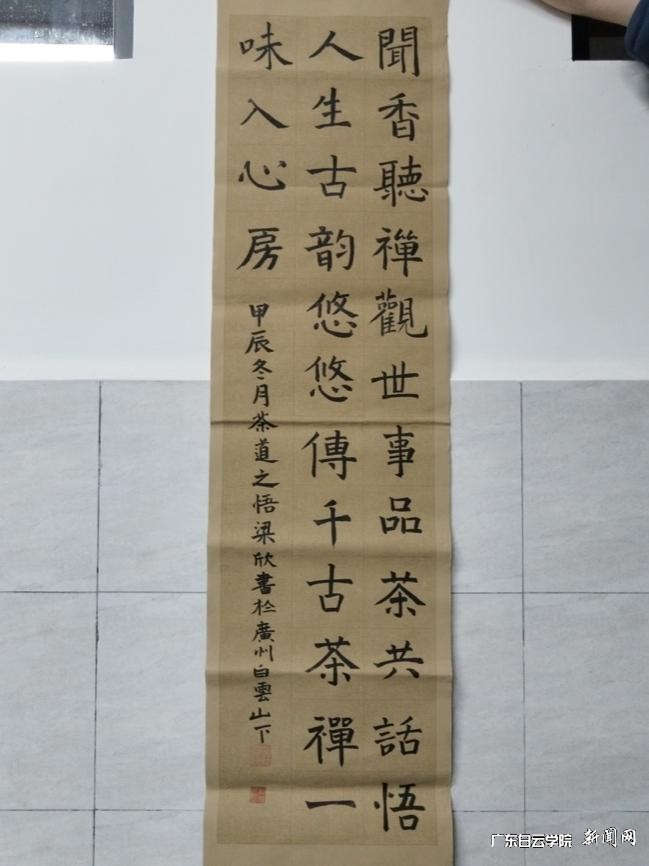 聞香聽禪觀世事品茶共話悟
人生古韵悠悠傳千古茶禪一
味入心房
甲辰冬月茶道之悟梁欣書於廣州白雲山下
广东白云学院 新闻网